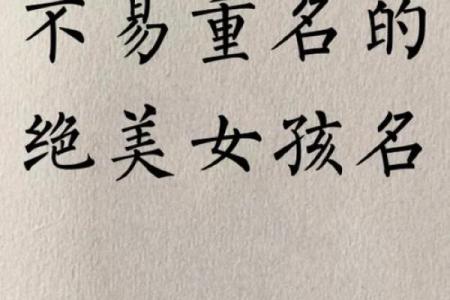 不易重名的
绝美女孩名